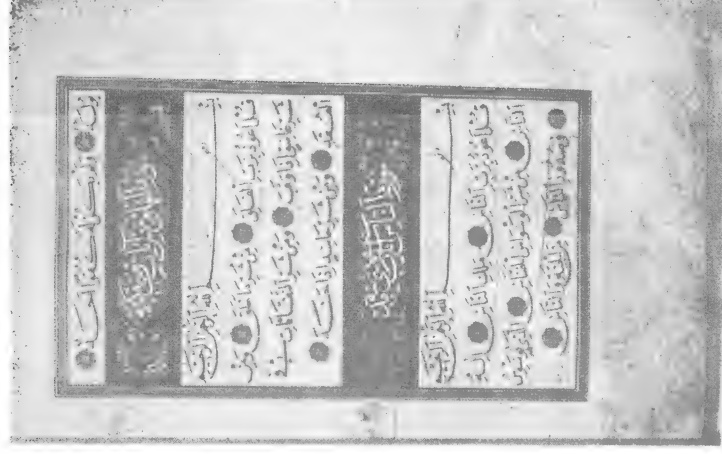 يولد ولم يكن له كفوا أحد
سورة الفلق
بسم الله الرحمن الرحيم
قل أعوذ برب الفلق من شر ما خلق ومن
شر غاسق إذا وقب ومن شر النفاثات في
العقد ومن شر حاسد إذا حسد
سورة الناس
بسم الله الرحمن الرحيم
قل أعوذ برب الناس ملك الناس إله
الناس من شر الوسواس الخناس الذي يوسوس
في صدور الناس من الجنة والناس